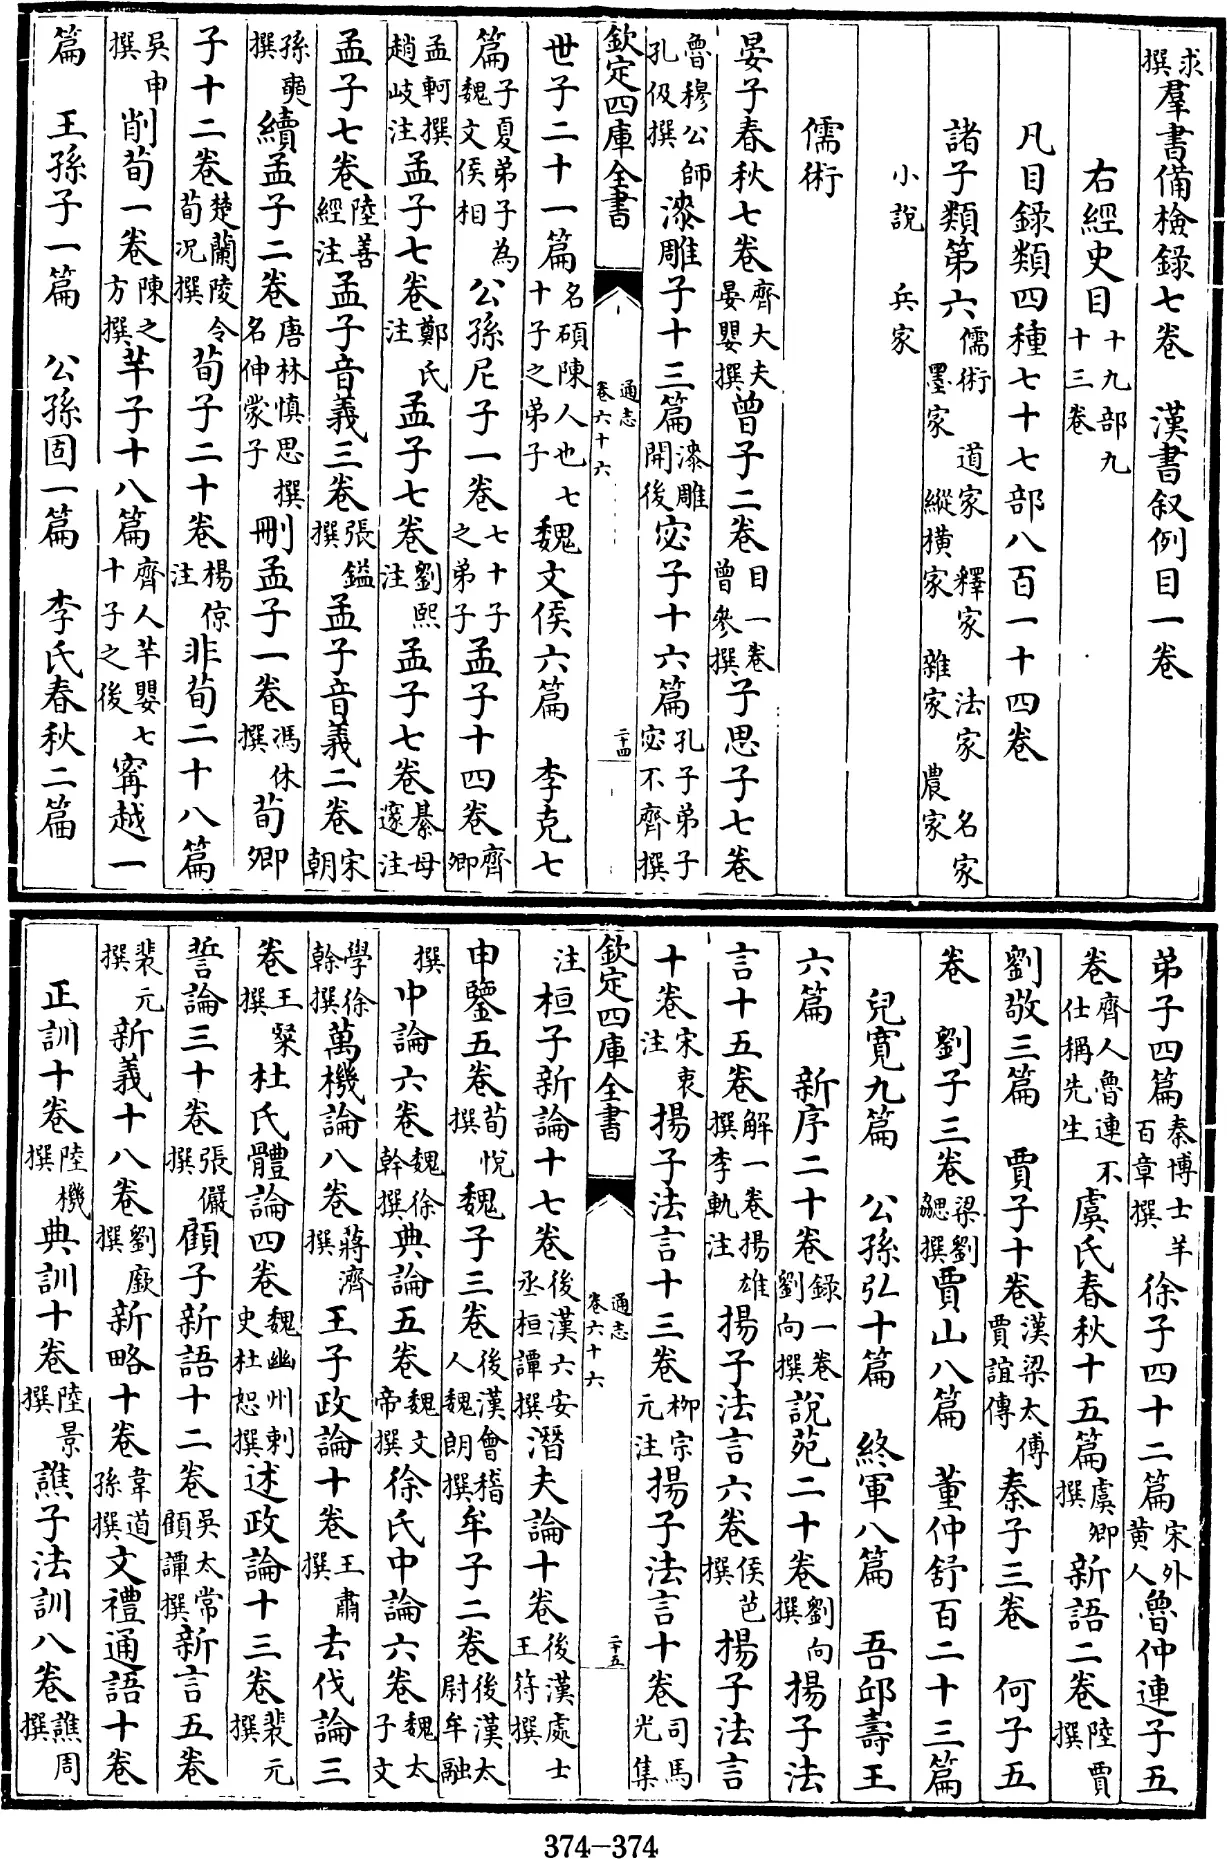 求撰羣書備檢錄七卷　漢書叙例目一卷
右經史目十九部九十三卷
凡目錄類四種七十七部八百一十四卷
諸子類第六儒術　道家　釋家　法家　名家墨家　縱橫家　雜家　農家
小說　兵家
儒術
晏子春秋七卷齊大夫晏嬰撰曾子二卷目一卷曾參撰子思子七卷
魯穆公師孔伋撰漆雕子十三篇漆雕開後宓子十六篇孔子弟子宓不齊撰
欽定四庫全書　通志卷六十六　二十四
世子二十一篇名碩陳人也七十子之弟子魏文侯六篇　李克七
篇子夏弟子為魏文侯相公孫尼子一卷七十子之弟子孟子十四卷齊卿
孟軻撰趙岐注孟子七卷鄭氏注孟子七卷劉熙注孟子七卷綦母邃注
孟子七卷陸善經注孟子音義三卷張鎰撰孟子音義二卷宋朝
孫奭撰續孟子二卷唐林慎思撰名伸蒙子刪孟子一卷馮休撰荀卿
子十二卷楚蘭陵令荀況撰荀子二十卷楊倞注非荀二十八篇
吳申撰削荀一卷陳之方撰芊子十八篇齊人芊嬰七十子之後甯越一
篇　王孫子一篇　公孫固一篇　李氏春秋二篇
弟子四篇秦博士羊百章撰徐子四十二篇宋外黃人魯仲連子五
卷齊人魯連不仕稱先生虞氏春秋十五篇虞卿撰新語二卷陸賈撰
劉敬三篇　賈子十卷漢梁太傅賈誼傳秦子三卷　何子五
卷　劉子三卷梁劉勰撰賈山八篇　董仲舒百二十三篇
兒寬九篇　公孫弘十篇　終軍八篇　吾邱壽王
六篇　新序二十卷錄一卷劉向撰說苑二十卷劉向撰揚子法
言十五卷解一卷揚雄撰李軌注揚子法言六卷侯芭撰揚子法言
十卷宋衷注揚子法言十三卷柳宗元注揚子法言十卷司馬光集
欽定四庫全書　通志卷六十六　二十五
注桓子新論十七卷後漢六安丞桓譚撰潛夫論十卷後漢處士王符撰
申鑒五卷荀悅撰魏子三卷後漢會稽人魏朗撰牟子二卷後漢太尉牟融
撰中論六卷魏徐幹撰典論五卷魏文帝撰徐氏中論六卷魏太子文
學徐幹撰萬機論八卷蔣濟撰王子政論十卷王肅撰去伐論三
卷王粲撰杜氏體論四卷魏幽州刺史杜恕撰述政論十三卷裴元撰
誓論三十卷張儼撰顧子新語十二卷吳太常顧譚撰新言五卷
裴元撰新義十八卷劉廞撰新略十卷韋道孫撰文禮通語十卷
正訓十卷陸機撰典訓十卷陸景撰譙子法訓八卷譙周撰
374-374